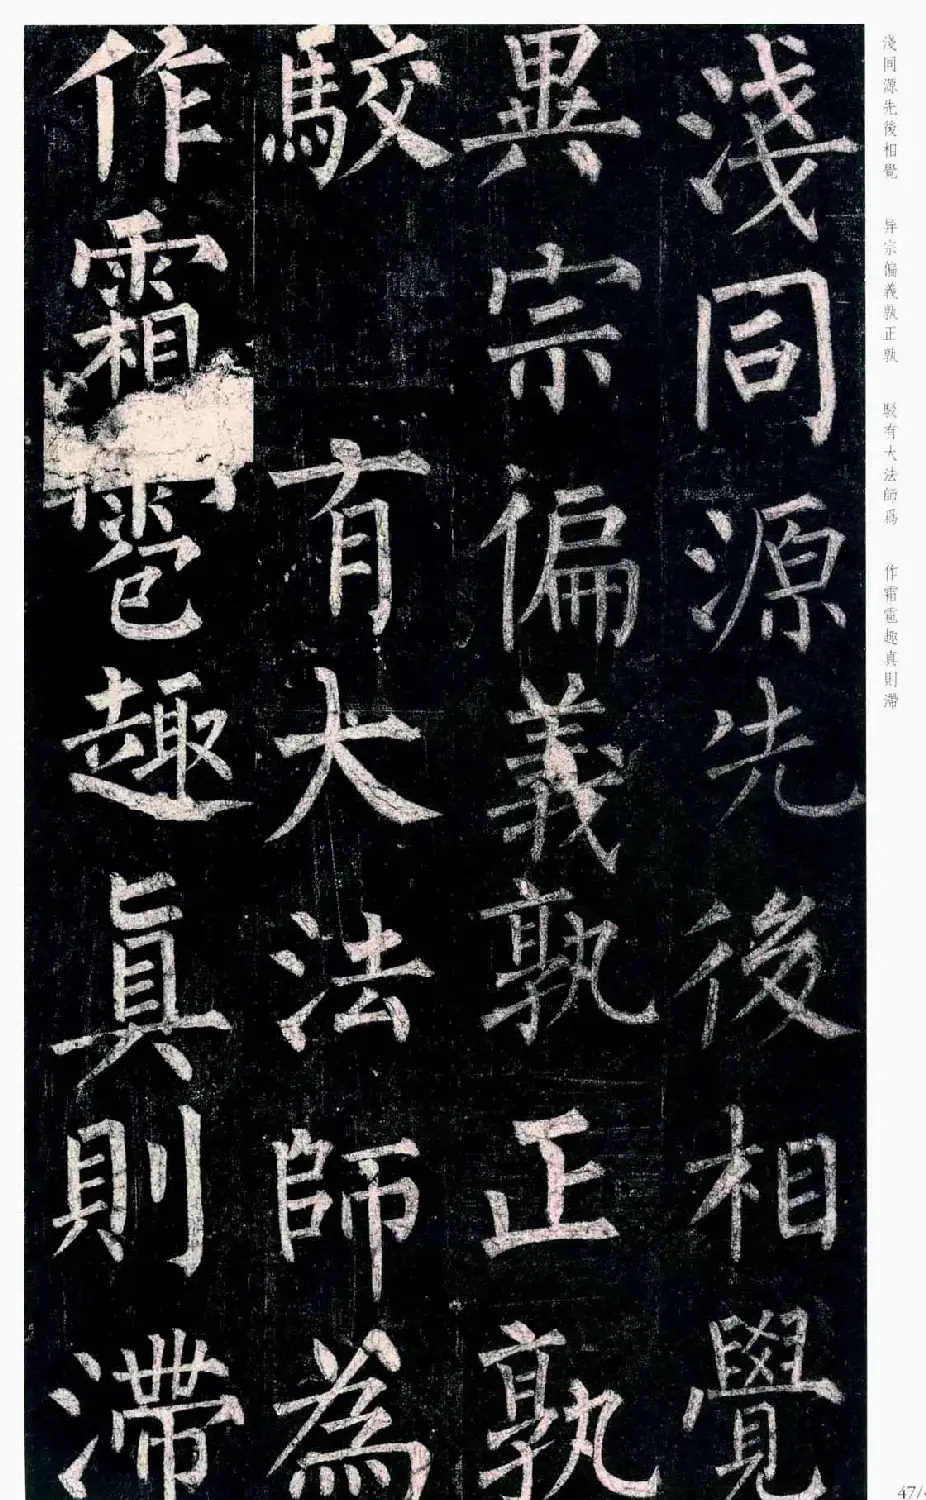 淺同源先後相覺
異宗偏義孰正孰
駮有大法師為
作霜雹趣真則滯
淺同源先後相覺
异宗偏義孰正孰
駁有大法師爲
作霜雹趣真則滯
47/